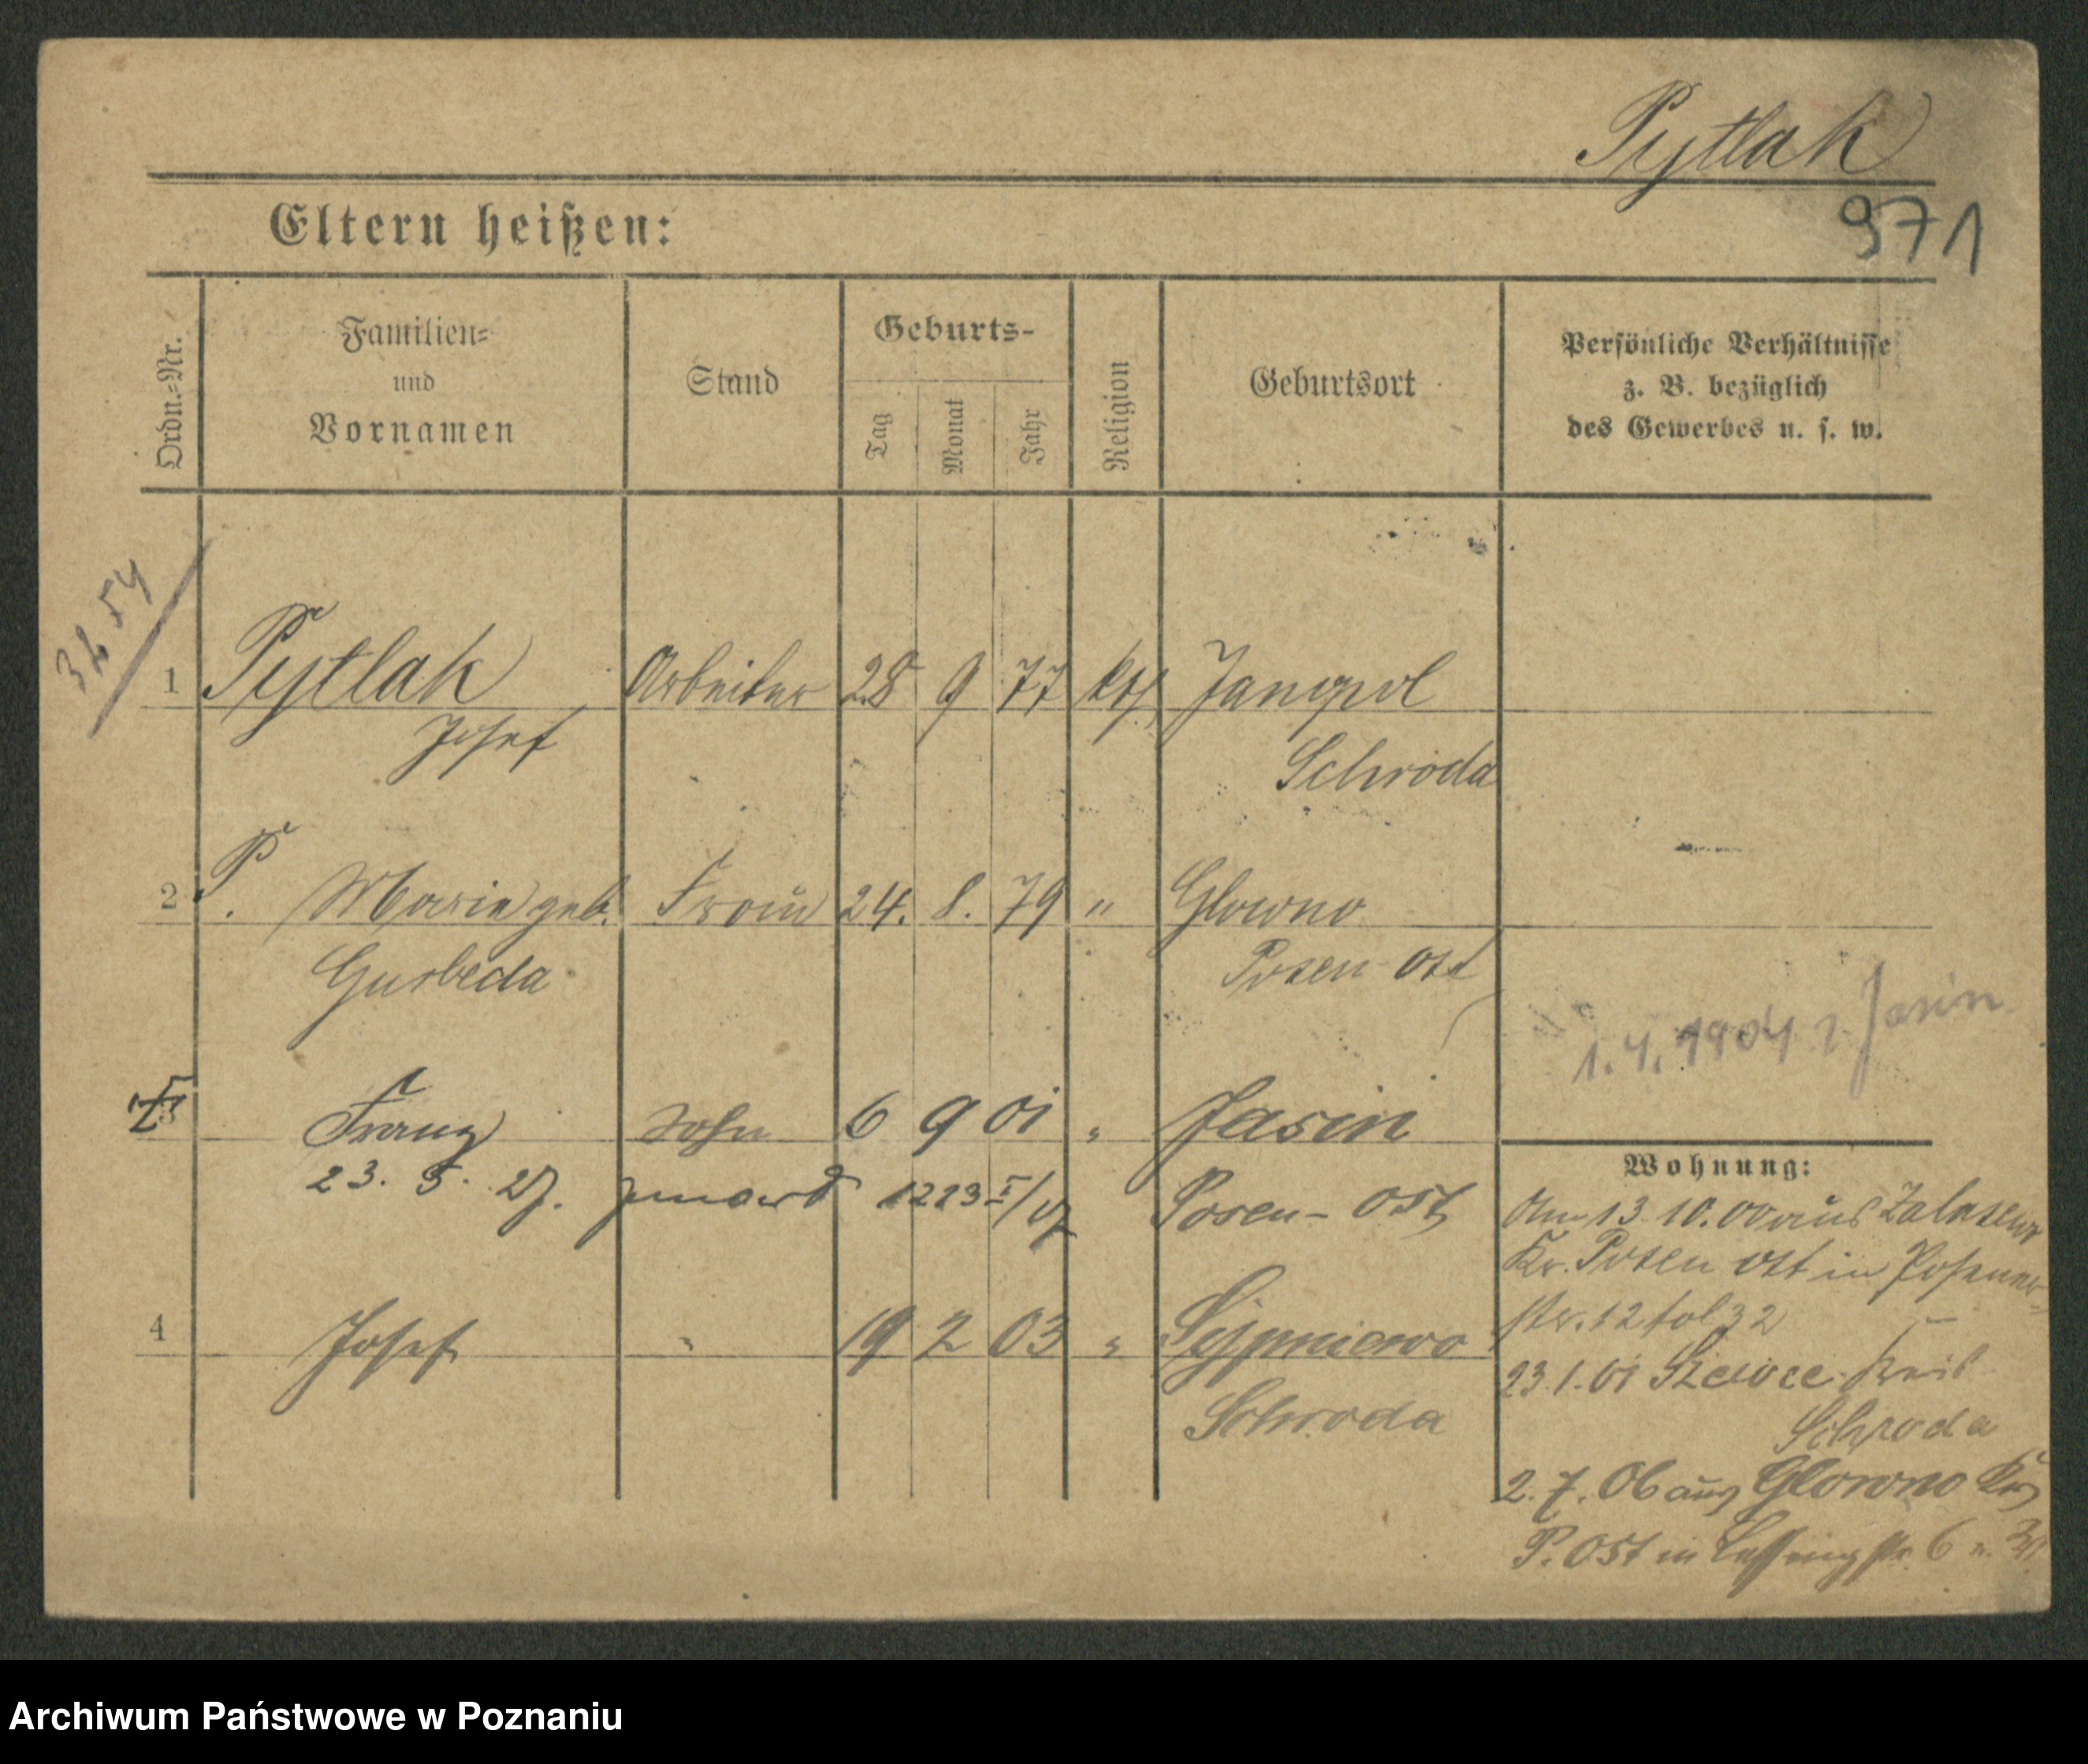 Pytlak
971
Eltern heißen:
Ordn.-Nr.
Familien-
und
Vornamen
Stand
Geburts-
Tag
Monat
Jahr
Religion
Geburtsort
Persönliche Verhältnisse
z. B. bezüglich
des Gewerbes u. s. w.
1 Pytlak Arbeiter 28 9 77 kth Janopol
Josef Schroda
2 P. Marie geb. Frau 24. 8. 79 " Glowno
Gurbeda Posen Ost
1.4.1904 Jasin
Franz Sohn 6 9 01 " Jasin
Wohnung:
23. 5. 27. 1223 Posen-Ost
Am 13.10.00 aus Zalasewo
Kr. Posen Ost in Posener-
str. 12 fol 32
4 Josef " 19 2 03 "
23.1.01 Kreis
Schroda Schroda
2.7.06 aus Glowno
P. Ost in Lessingstr. 6